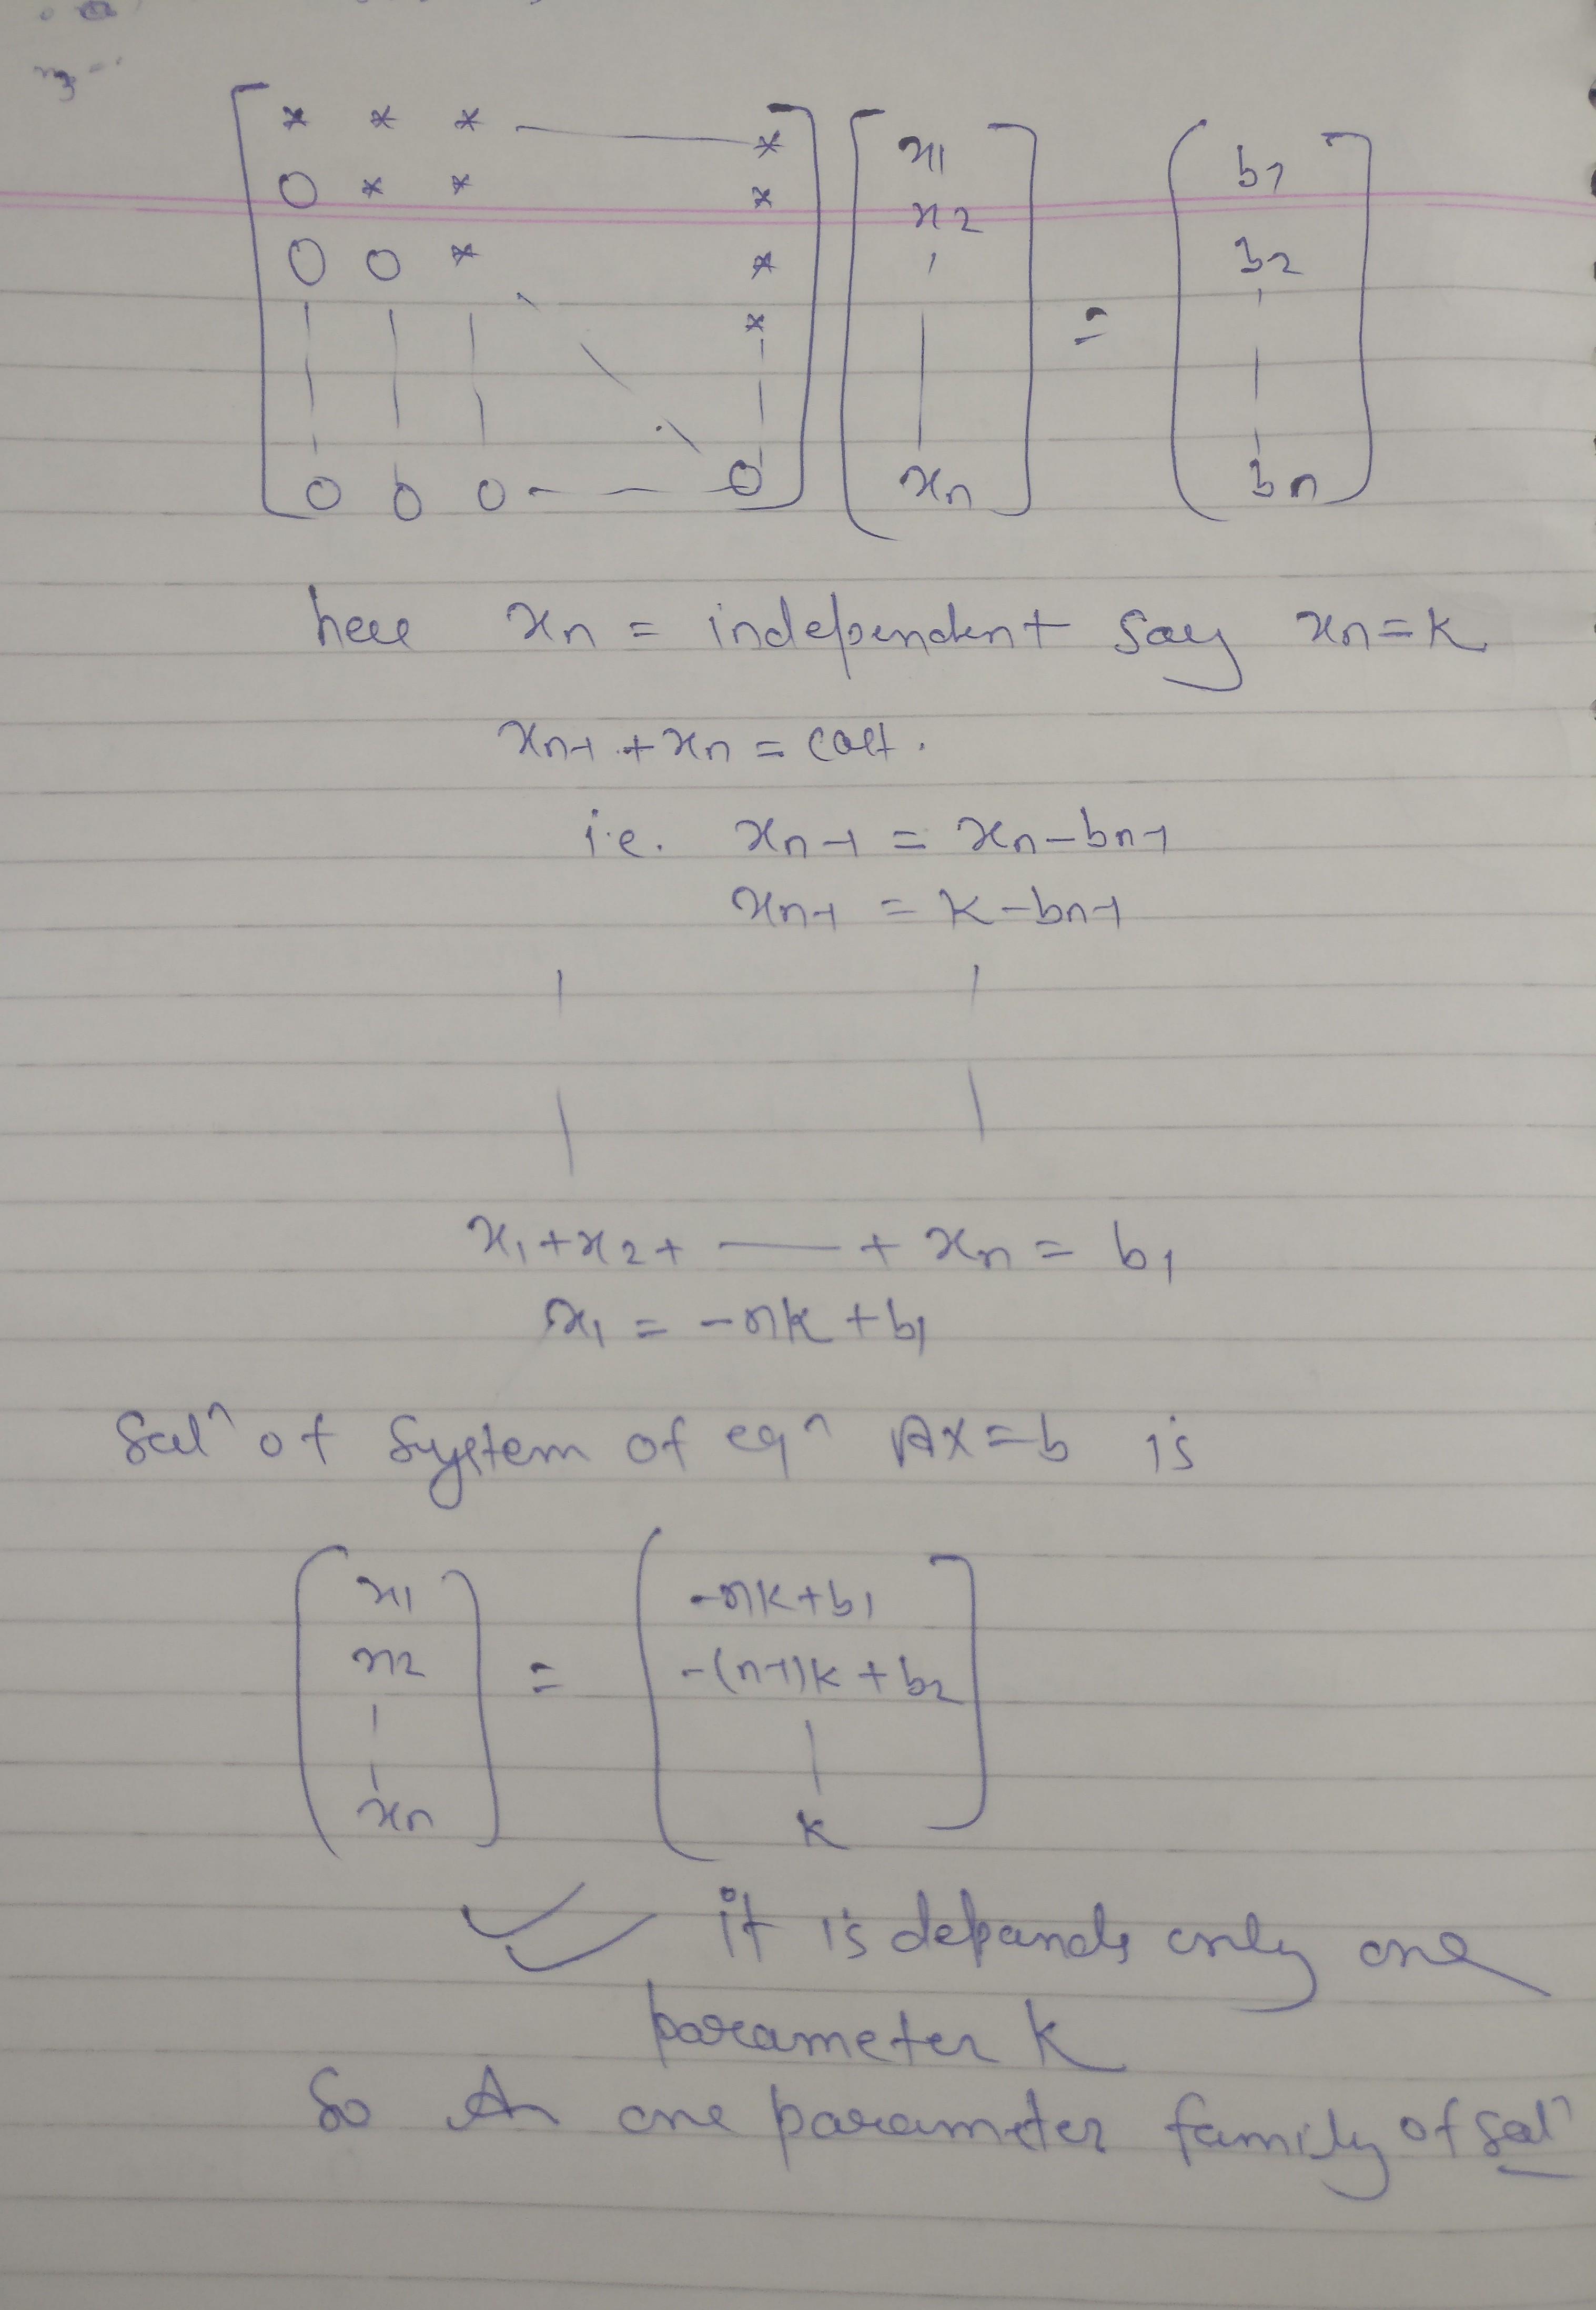 * * * — *
0 * * *
0 0 * *
*
0 0 0 - - - 0
x1
x2
xn
=
b1
b2
bn
here xn = independent say xn = k
xn-1 + xn = cast.
i.e. xn-1 = xn - bn-1
xn-1 = k - bn-1
x1 + x2 + — + xn = b1
x1 = -nk + b1
Solⁿ of system of eqⁿ AX = b is
x1
x2
xn
=
-nk + b1
-(n-1)k + b2
k
it is depands only one
parameter k
So A one parameter family of solⁿ